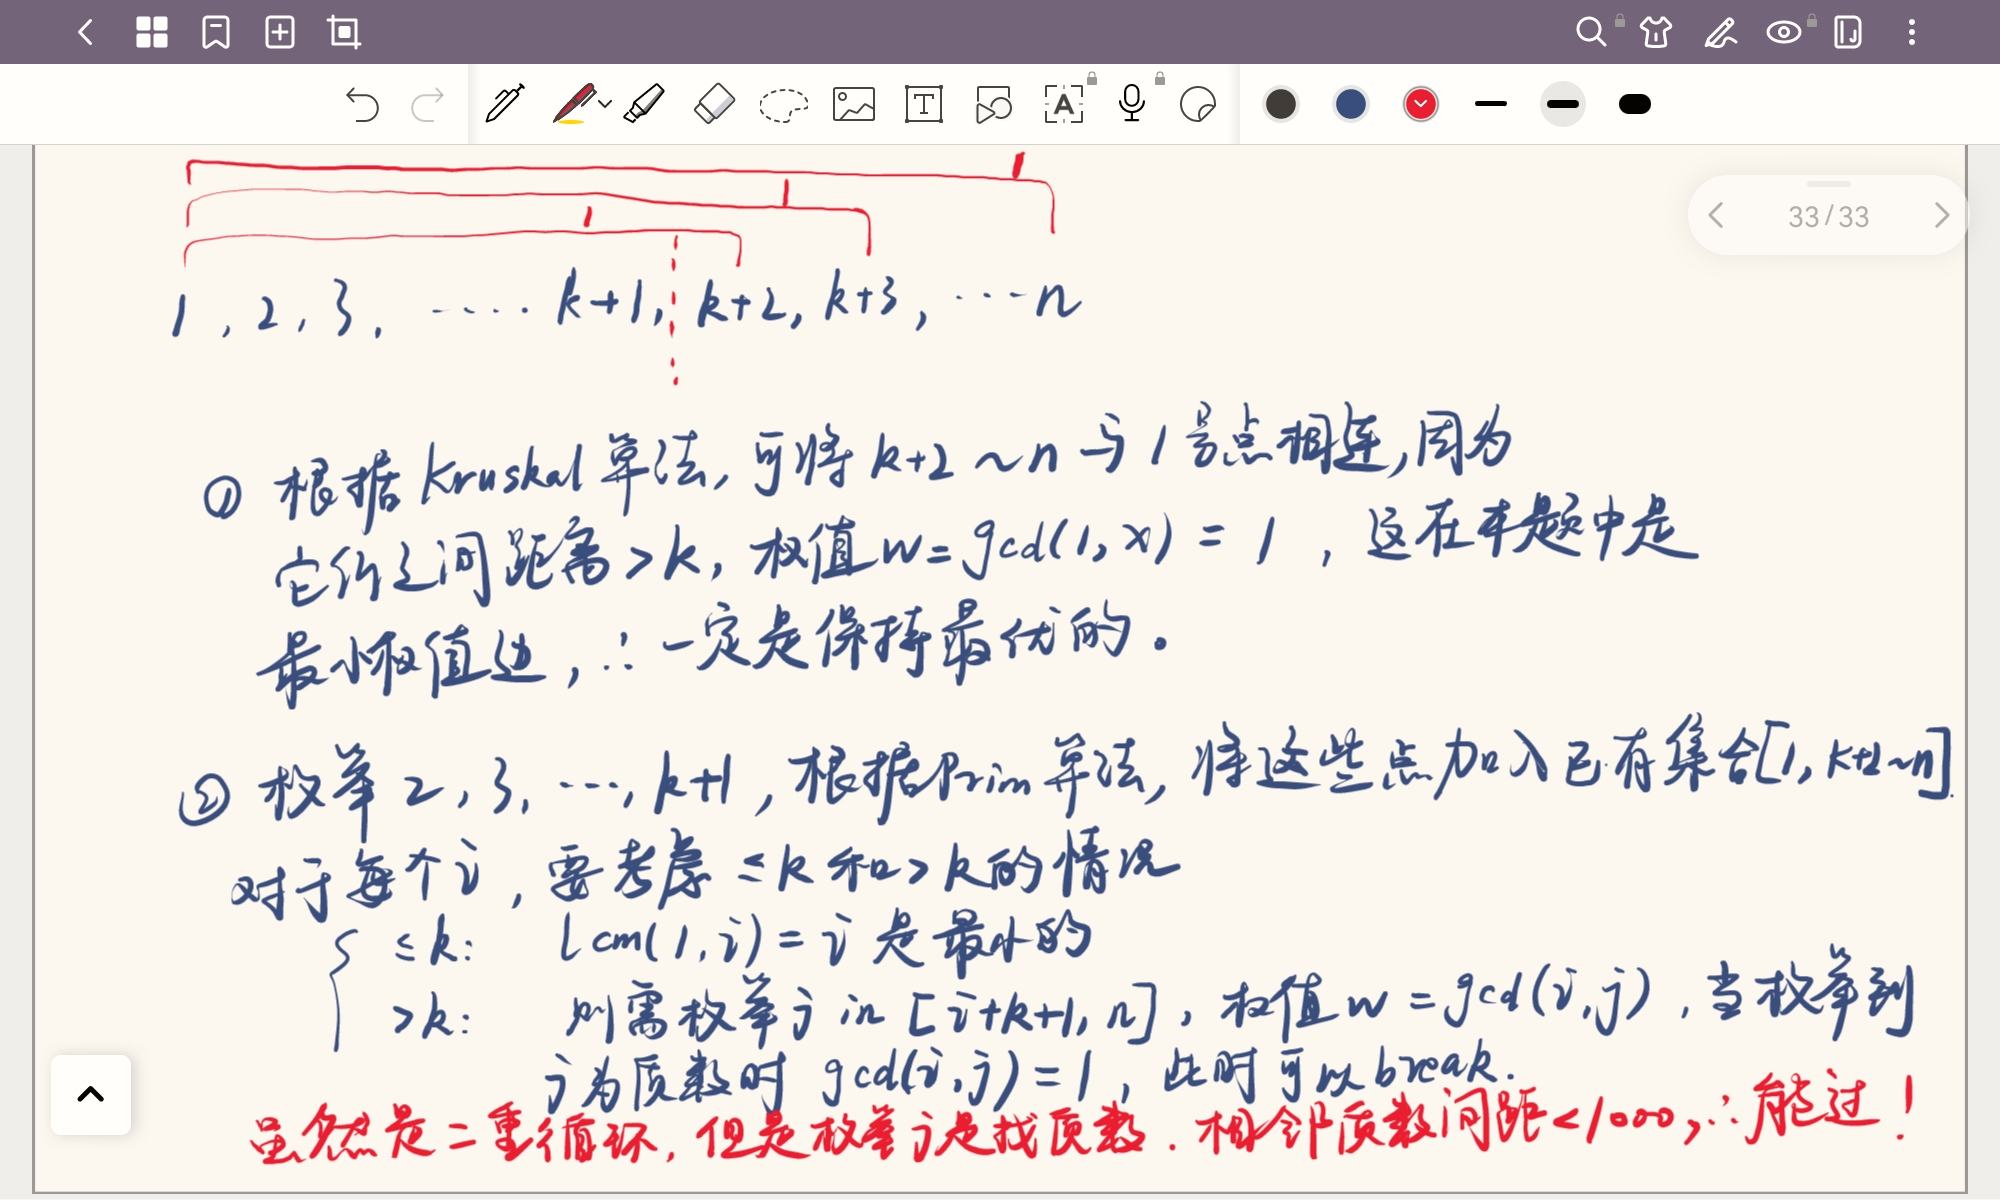 33/33
1, 2, 3, ····· k+1, k+2, k+3, ···n
① 根据 Kruskal 算法, 可将 k+2 ~ n 与 1 号点相连, 因为
它们之间距离 > k, 权值 w = gcd(1, x) = 1 , 这在本题中是
最小权值边, ∴ 一定是保持最优的。
② 枚举 2, 3, ···, k+1, 根据 Prim 算法, 将这些点加入已有集合[1, k+2~n].
对于每个 i, 要考虑 ≤ k 和 > k 的情况
≤ k: lcm(1, i) = i 是最小的
> k: 则需枚举 j in [i+k+1, n], 权值 w = gcd(i, j), 当枚举到
j 为质数时 gcd(i, j) = 1, 此时可以 break.
虽然是二重循环, 但是枚举 j 是找质数. 相邻质数间距 < 1000, ∴ 能过!